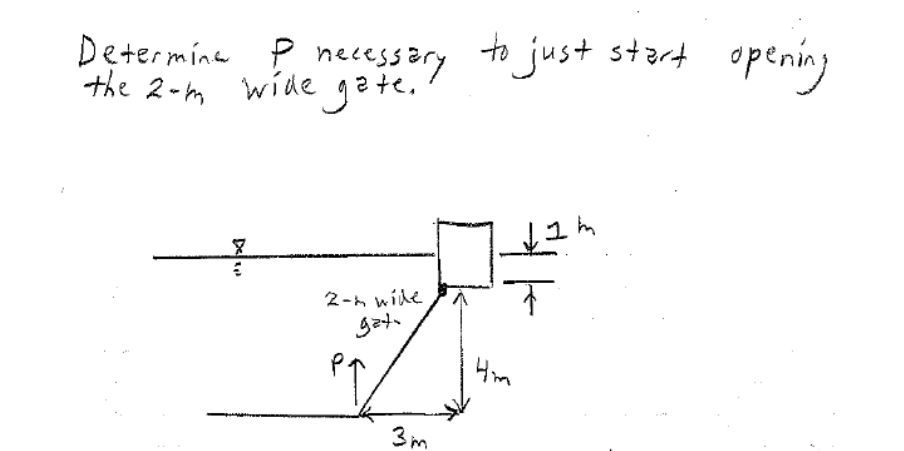 Determine P necessary to just start opening
the 2-m wide gate.
1 m
2-m wide
gate
P
4m
3m